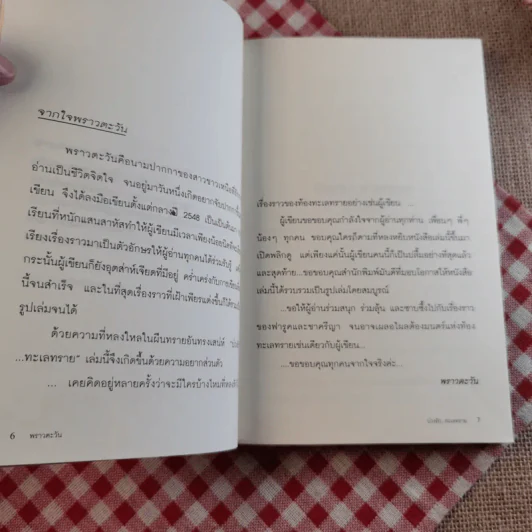 จากใจพราวตะวัน
พราวตะวันคือนามปากกาของสาวชาวเหนือที่มี
อ่านเป็นชีวิตจิตใจ จนอยู่มาวันหนึ่งเกิดอยาก
เขียน จึงได้ลงมือเขียนตั้งแต่กลางปี 2548 เป็นต้นมา
เรียนที่หนักแสนสาหัสทำให้ผู้เขียนมีเวลาเพียงน้อยนิด
เรียงเรื่องราวมาเป็นตัวอักษรให้ผู้อ่านทุกคนได้
กระนั้นผู้เขียนก็ยังอุตส่าห์เจียดที่มีอยู่ คร่ำเคร่งกับการ
นี้จนสำเร็จ และในที่สุดเรื่องราวที่เฝ้าเพียรแต่งขึ้นก็ได้
รูปเล่มจนได้
ด้วยความที่หลงใหลในผืนทรายอันทรงเสน่ห์
...ทะเลทราย” เล่มนี้จึงเกิดขึ้นด้วยความอยากส่วนตัว
... เคยคิดอยู่หลายครั้งว่าจะมีใครบ้างไหมที่
6 พราวตะวัน
เรื่องราวของท้องทะเลทรายอย่างเช่นผู้เขียน ...
ผู้เขียนขอขอบคุณกำลังใจจากผู้อ่านทุกท่าน เพื่อนๆ พี่ๆ
น้องๆ ทุกคน ขอบคุณใครก็ตามที่หลงหยิบหนังสือเล่มนี้ขึ้นมา
เปิดพลิกดู แค่เพียงแค่นั้นผู้เขียนคนนี้ก็เป็นปลื้มอย่างที่สุดแล้ว
และสุดท้าย...ขอขอบคุณสำนักพิมพ์มันดีที่มอบโอกาสให้หนังสือ
เล่มนี้ได้รวบรวมเป็นรูปเล่มโดยสมบูรณ์
...ขอให้ผู้อ่านร่วมสนุก ร่วมลุ้น และซาบซึ้งไปกับเรื่องราว
ของฟารุคและชาครียา จนอาจเผลอไผลต้องมนตร์แห่งท้อง
ทะเลทรายเช่นเดียวกับผู้เขียน...
...ขอขอบคุณทุกคนจากใจจริงค่ะ...
พราวตะวัน
7